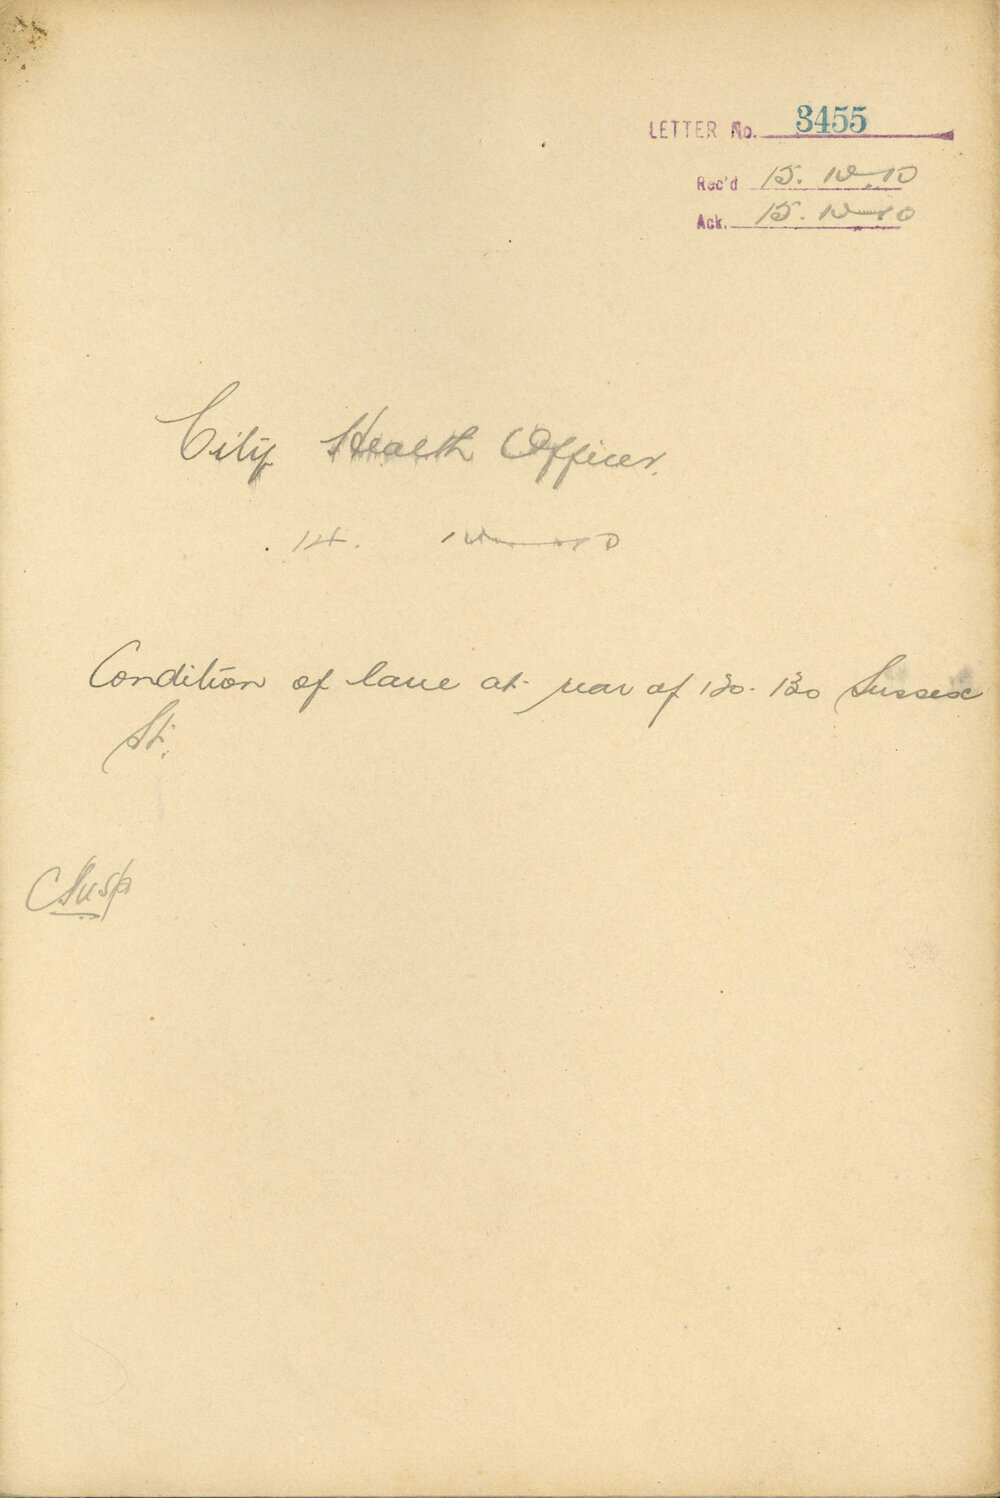 LETTER No. 3455
Rec'd 15. 10-10
Ack. 15. 10-10
City Health Officer.
14. 10-10
Condition of lane at rear of 130 Sussex
St.